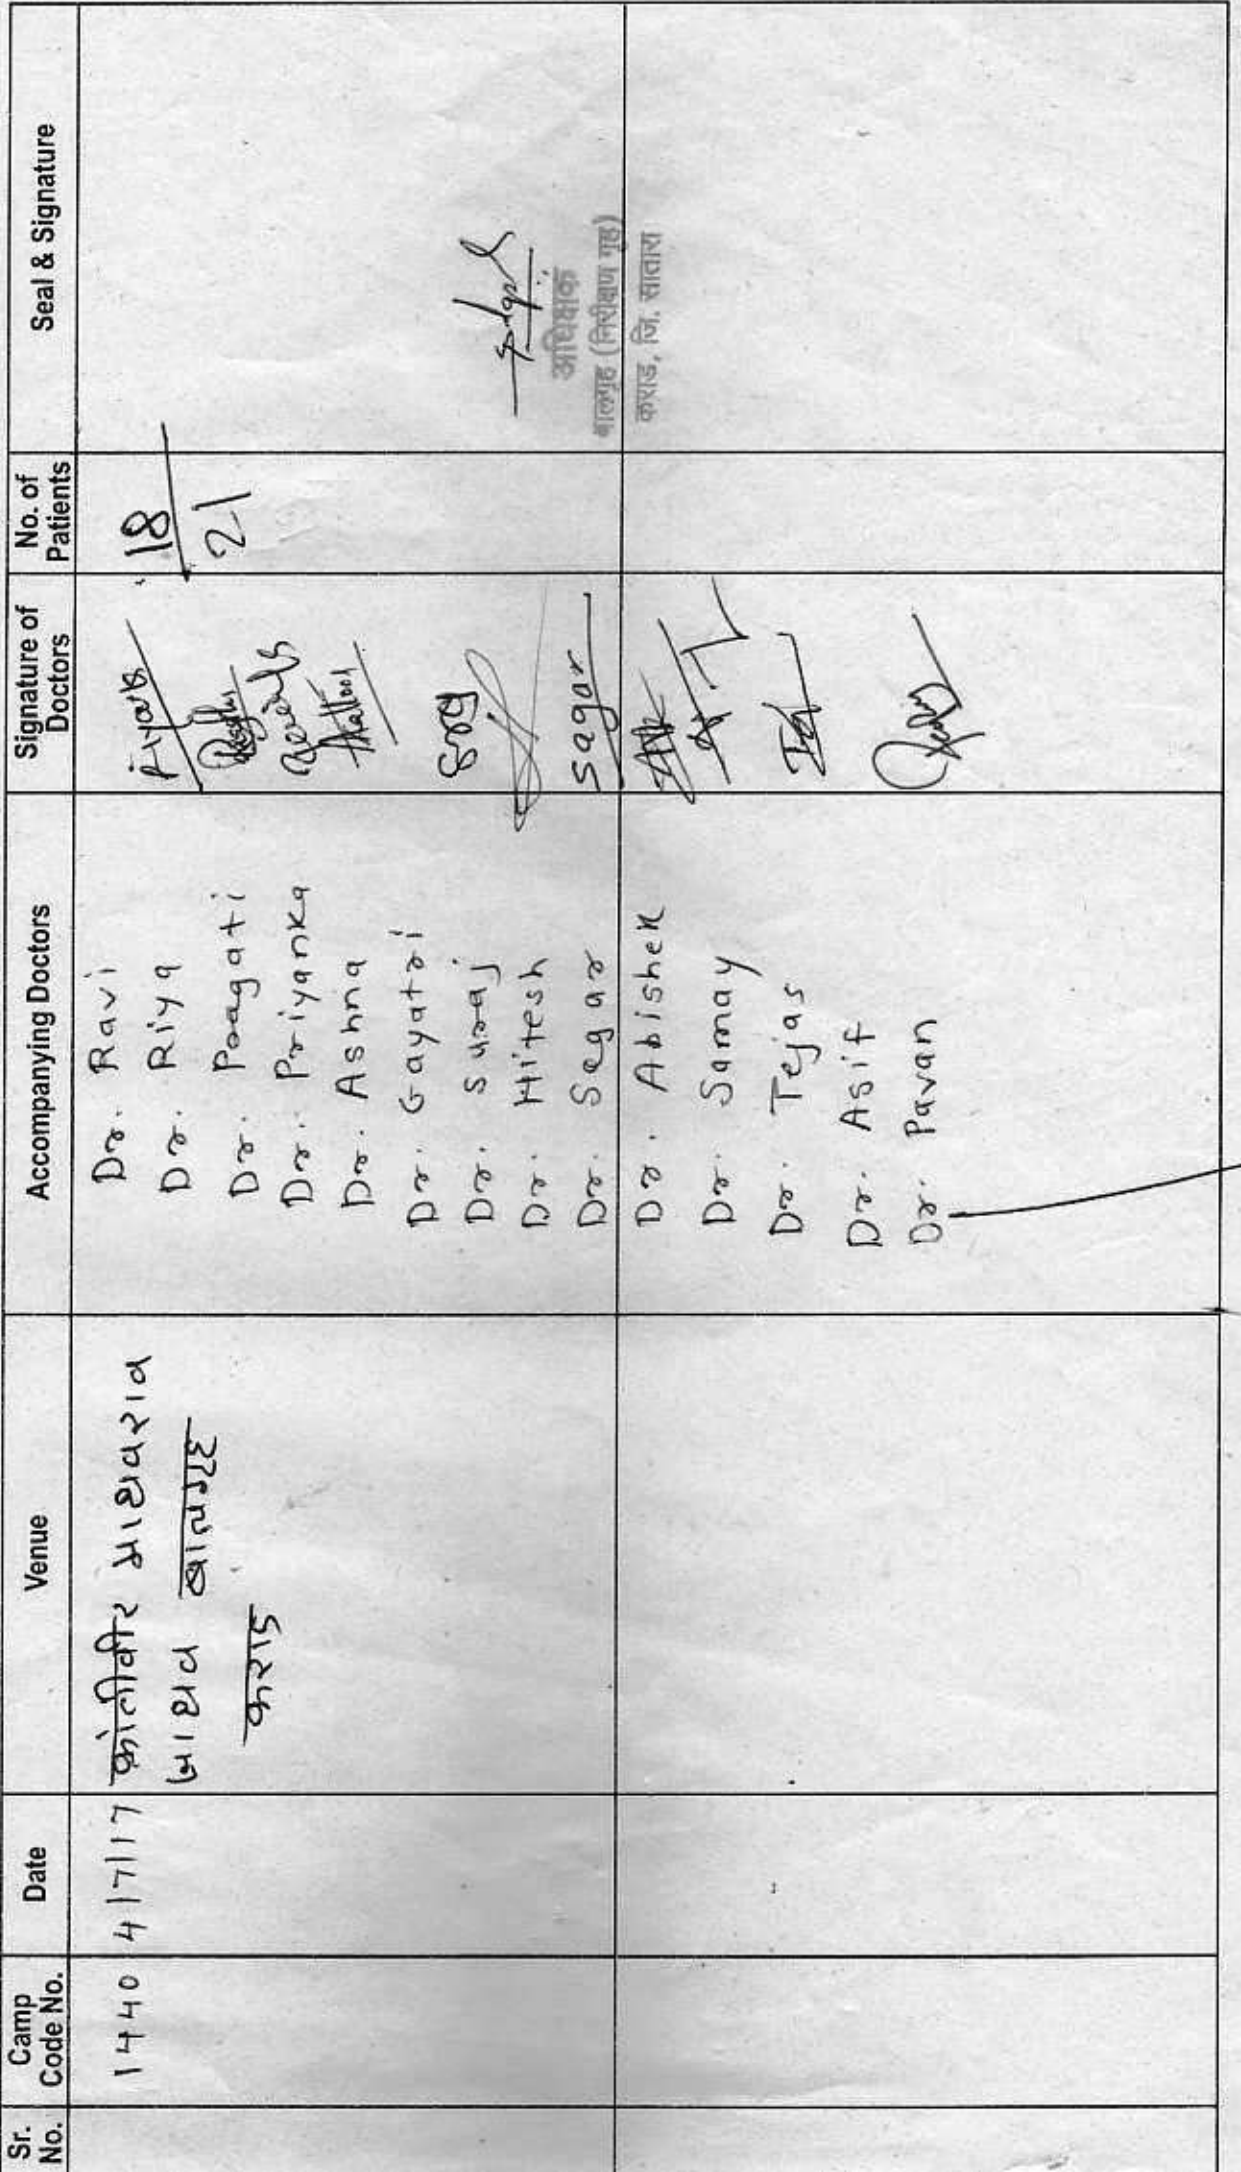 Sr. No.
Camp Code No.
Date
Venue
Accompanying Doctors
Signature of Doctors
No. of Patients
Seal & Signature
1440
4/7/17
क्रांतीवीर माधवराव
जाधव बालगृह
कराड
Dr. Ravi
Dr. Riya
Dr. Pragati
Dr. Priyanka
Dr. Ashna
Dr. Gayatri
Dr. Suraj
Dr. Hitesh
Dr. Sagar
Dr. Abishek
Dr. Samay
Dr. Tejas
Dr. Asif
Dr. Pavan
Sagar
18
21
अधिक्षक
बालगृह (निरीक्षण गृह)
कराड, जि. सातारा